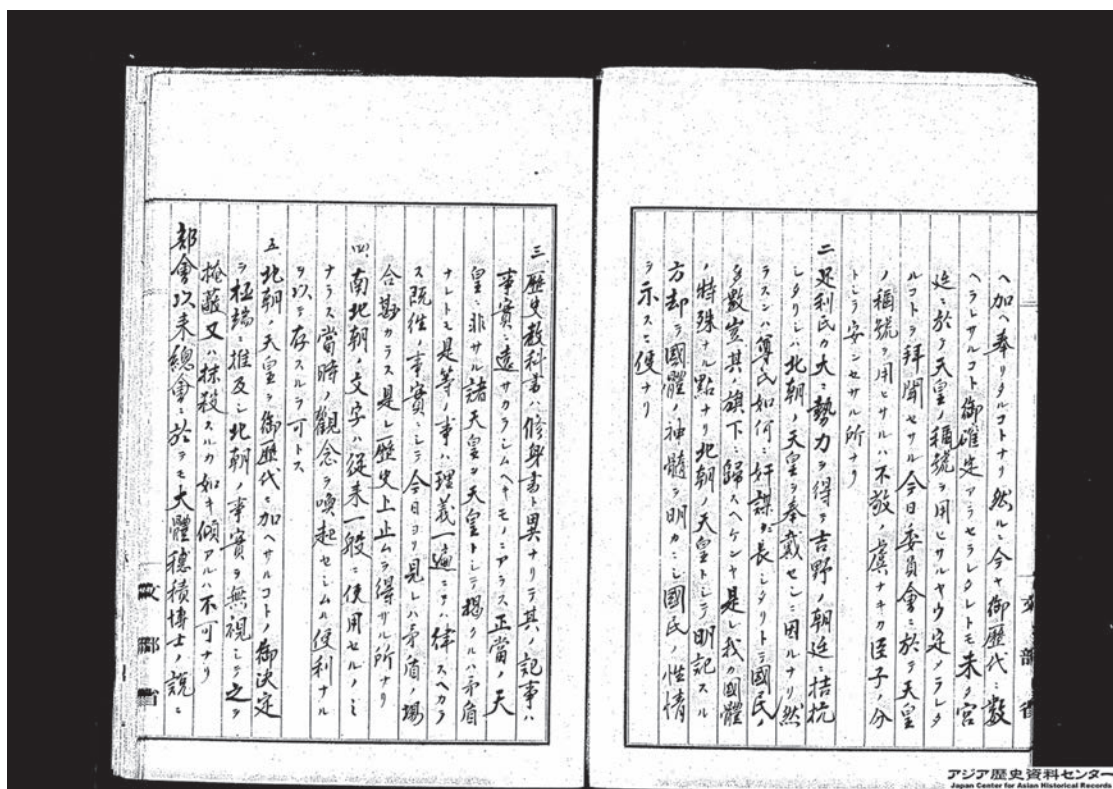 ヘ加ヘ奉リタルコトナリ然ルニ今ヤ御歴代ニ數
ヘラレサルコト御確定アラセラレタレトモ未タ宮
廷ニ於テ天皇ノ稱號ヲ用ヒサルヤウ定メラレタ
ルコトヲ拜聞セサル今日委員會ニ於テ天皇
ノ稱號ヲ用ヒサルハ不敬ノ虞ナキカ臣子ノ分
トシテ安ンセサル所ナリ
二 足利氏カ大ニ勢力ヲ得テ吉野ノ朝廷ニ拮抗
シタリシハ北朝ノ天皇ヲ奉戴セシニ因ルナリ然
ラスンハ尊氏如何ニ奸謀ニ長シタリトテ國民ノ
多數豈其ノ旗下ニ歸スヘケンヤ是レ我カ國體
ノ特殊ナル點ナリ北朝ノ天皇トシテ明記スル
方却テ國體ノ神髓ヲ明カニシ國民ノ性情
ヲ示スニ便ナリ
三、歴史教科書ハ修身書ト異ナリテ其ノ記事ハ
事實ニ遠サカラシムヘキモノニアラス正當ノ天
皇ニ非サル諸天皇ヲ天皇トシテ揭クルハ矛盾
ナレトモ是等ノ事ハ理義一遍ニテ律スヘカラ
ス既往ノ事實ニシテ今日ヨリ見レハ矛盾ノ場
合尠カラス是レ歴史上止ムヲ得サル所ナリ
四、南北朝ノ文字ハ從来一般ニ使用セルノミ
ナラス當時ノ觀念ヲ喚起セシムル便利ナル
ヲ以テ存スルヲ可トス
五 北朝ノ天皇ヲ御歴代ニ加ヘサルコトノ御決定
ヲ極端ニ推及シ北朝ノ事實ヲ無視シテ之ヲ
掩蔽又ハ抹殺スルカ如キ傾アルハ不可ナリ
部會以来總會ニ於テモ大體穗積博士ノ説ニ
文部省
アジア歴史資料センター
Japan Center for Asian Historical Records